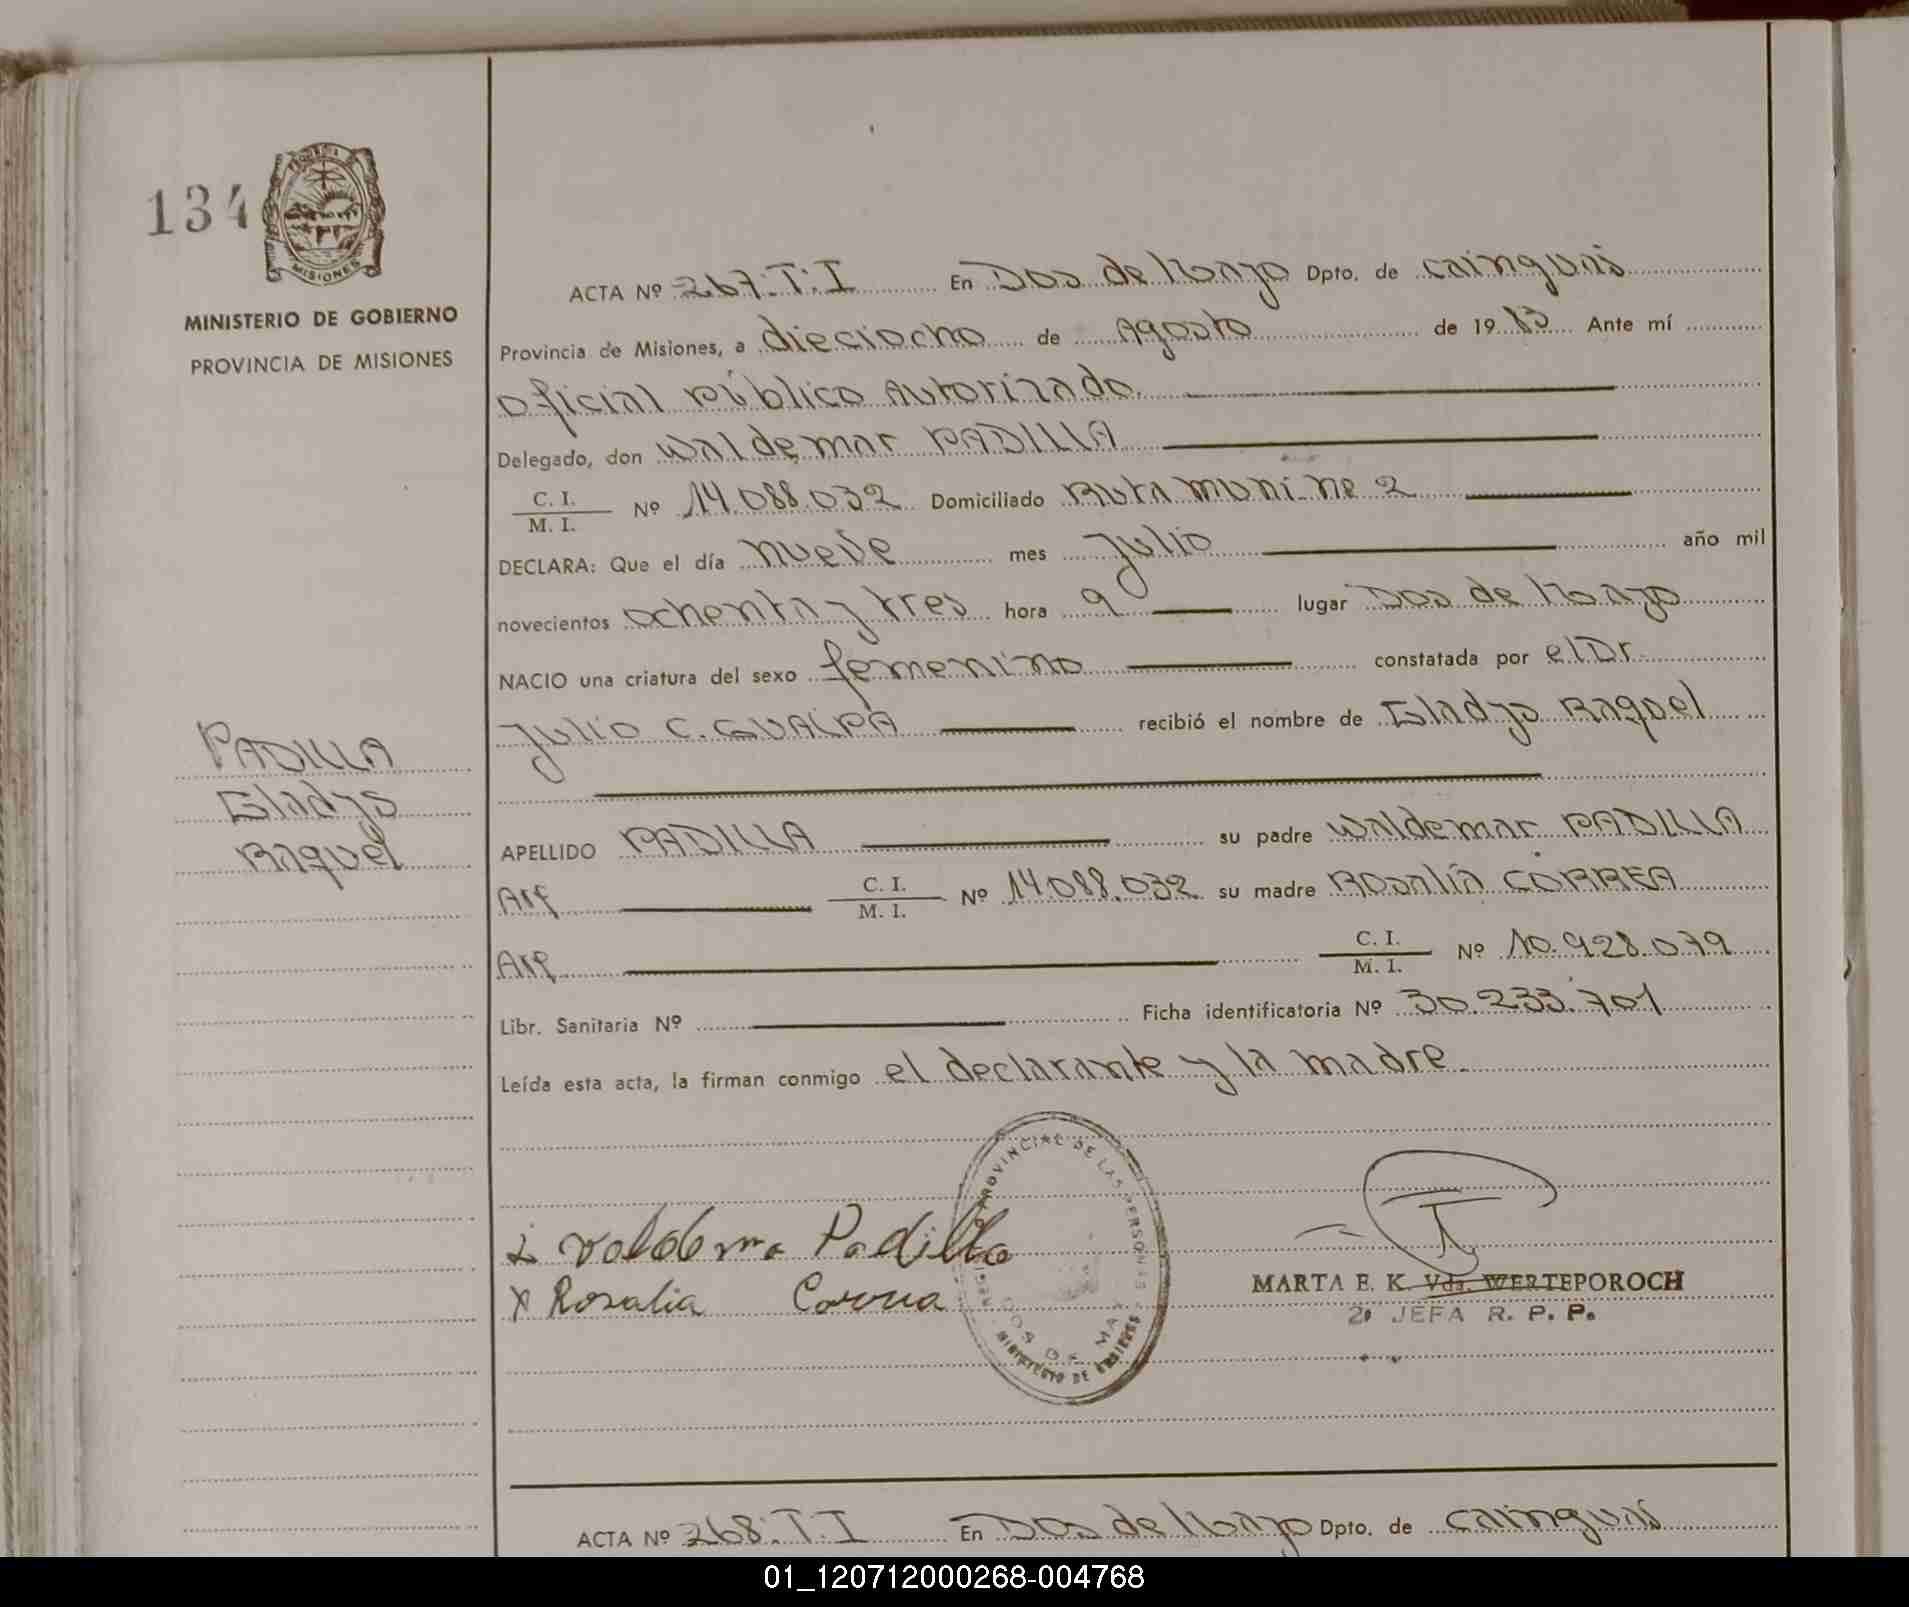 134
PROVINCIA DE
MISIONES
MINISTERIO DE GOBIERNO
PROVINCIA DE MISIONES
ACTA Nº 267.T.I En Dos de Mayo Dpto. de Cainguás
Provincia de Misiones, a dieciocho de Agosto de 1983 Ante mí
Oficial Público Autorizado.
Delegado, don Waldemar PADILLA
C. I.
M. I. Nº 14.088.032 Domiciliado Ruta muni. nº 2
DECLARA: Que el día nueve mes Julio año mil
novecientos ochenta y tres hora 9 lugar Dos de Mayo
NACIO una criatura del sexo femenino constatada por el Dr.
Julio C. GUALPA recibió el nombre de Gladys Raquel
PADILLA
Gladys
Raquel
APELLIDO PADILLA su padre Waldemar PADILLA
Arg C. I.
M. I. Nº 14.088.032 su madre Rosalía CORREA
Arg C. I.
M. I. Nº 10.928.079
Libr. Sanitaria Nº Ficha identificatoria Nº 30.233.701
Leída esta acta, la firman conmigo el declarante y la madre.
PROVINCIAL DE LAS PERSONAS
DOS DE MAYO
MINISTERIO DE
x Valdema Padilla
x Rosalia Correa
MARTA E. K. Vda. WERTEPOROCH
2º JEFA R. P. P.
ACTA Nº 268.T.I En Dos de Mayo Dpto. de Cainguás
01_120712000268-004768